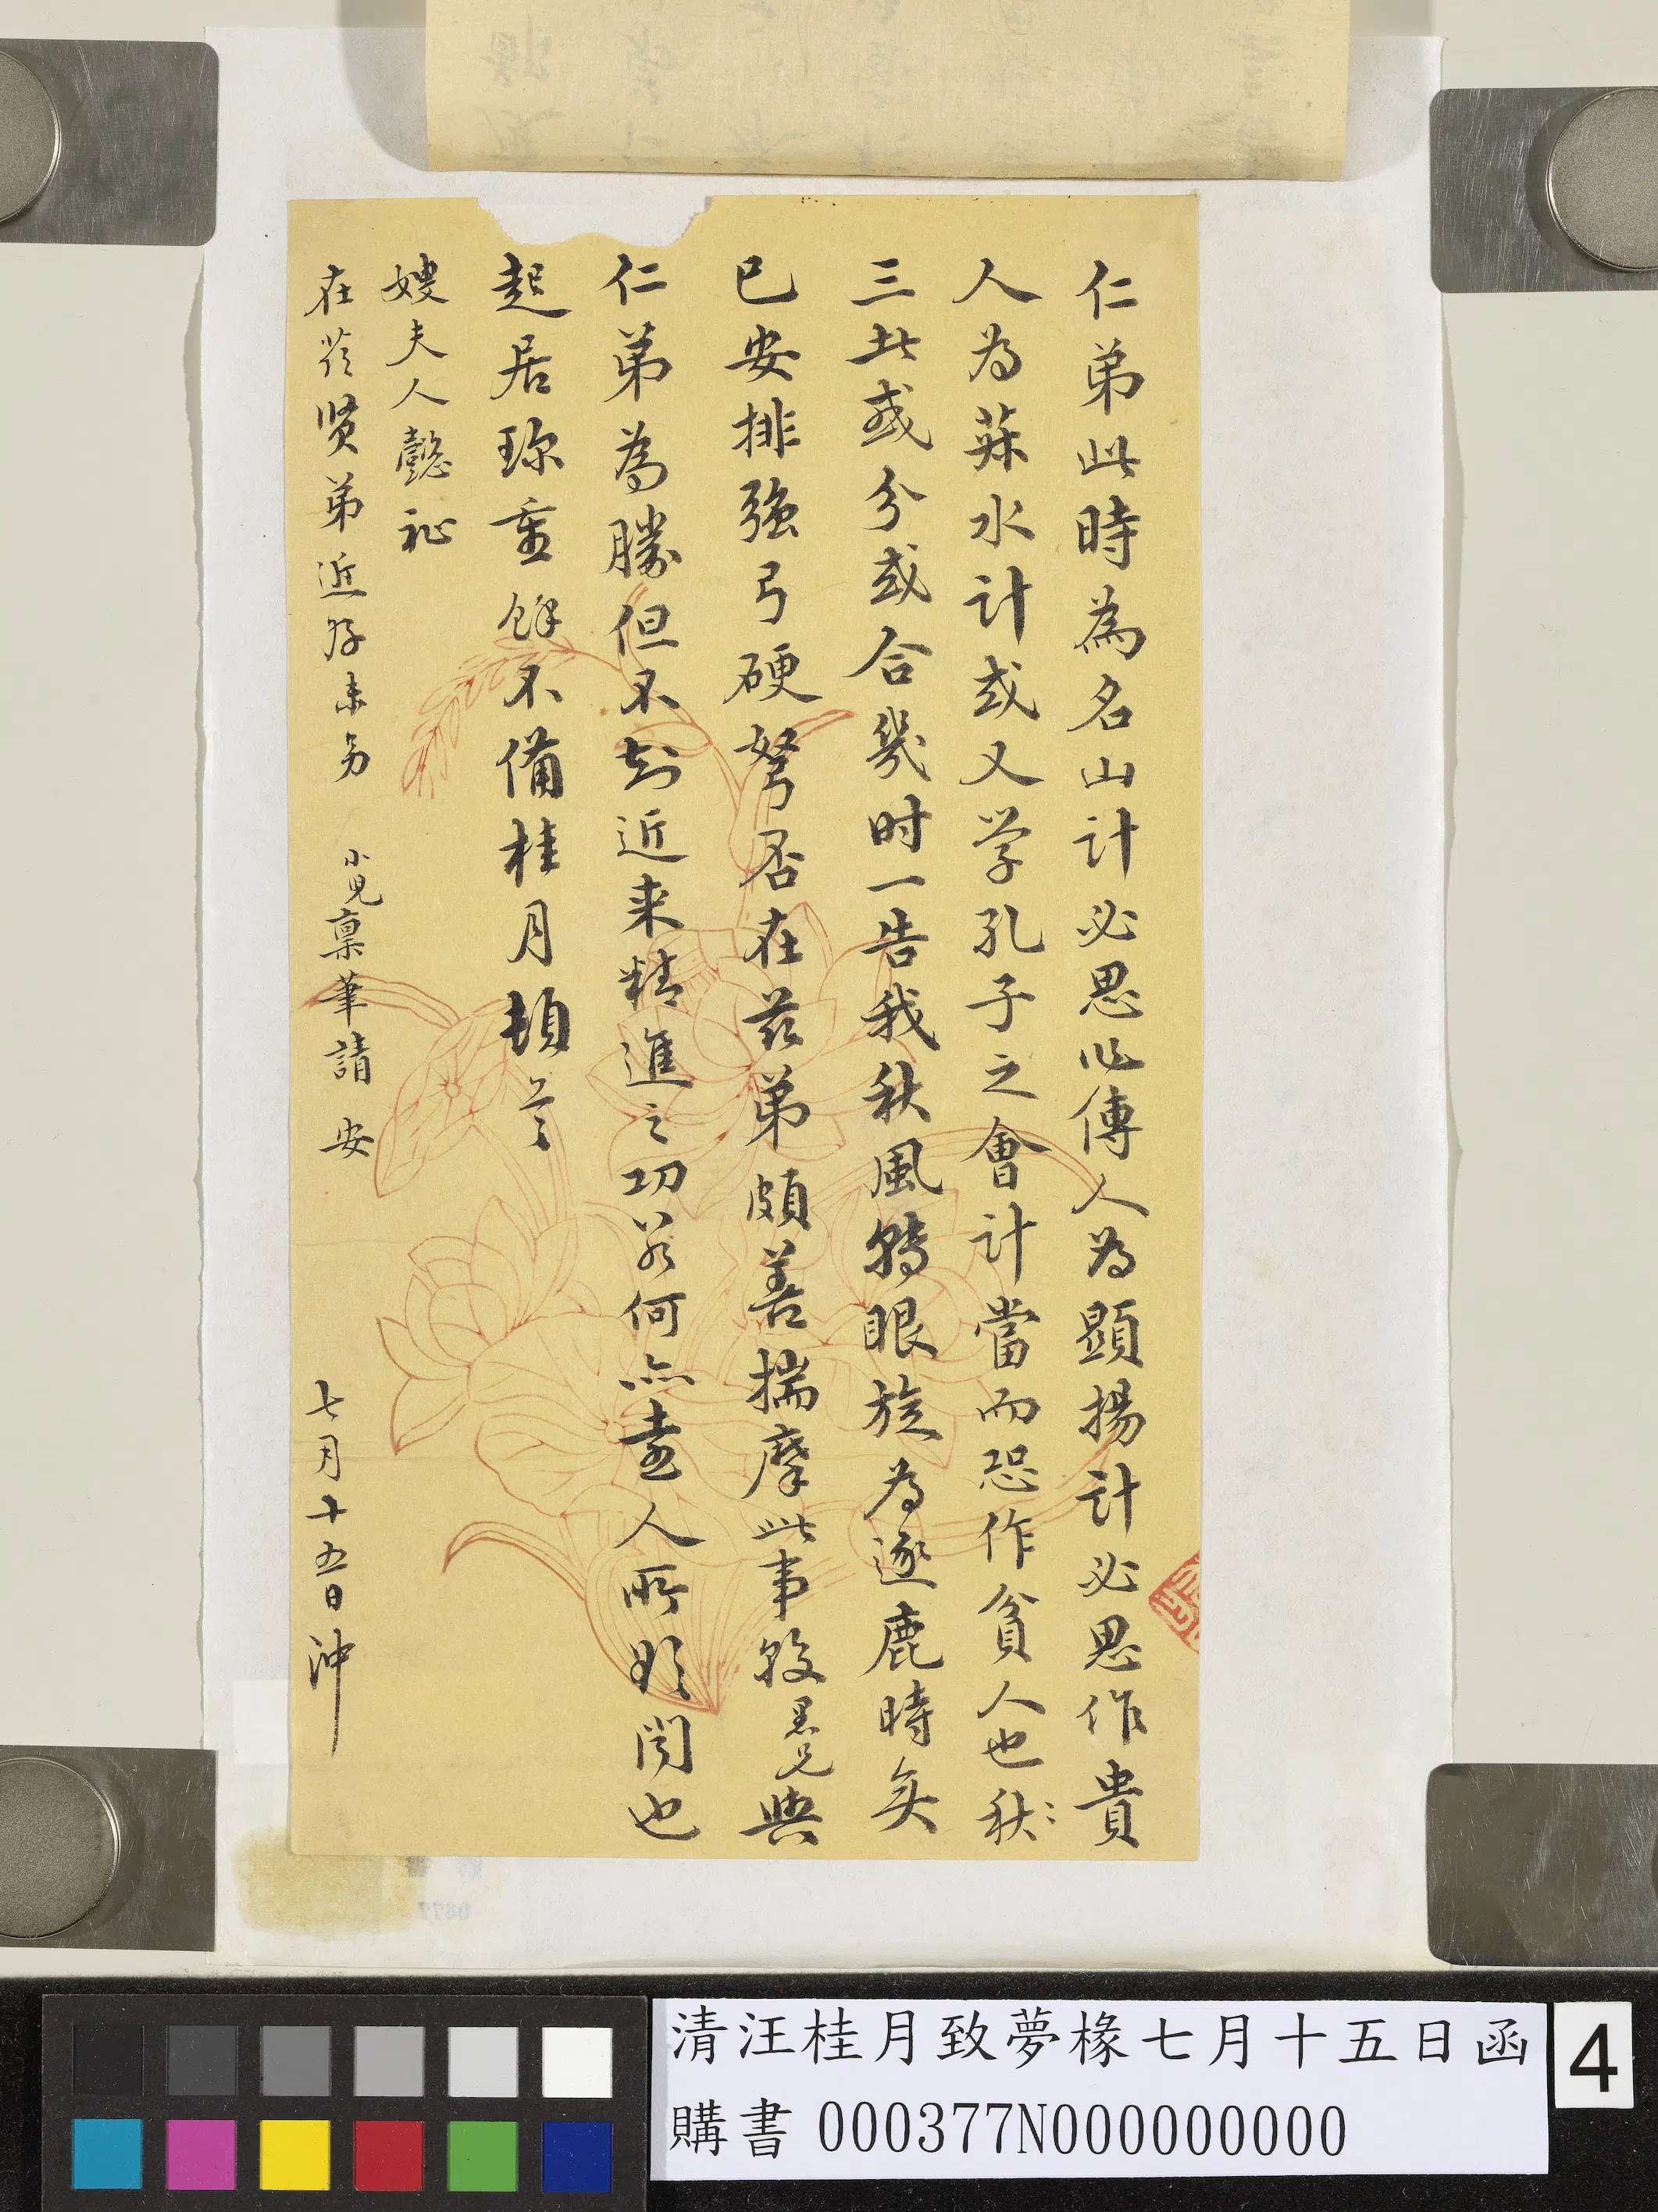 仁弟此時為名山計必思作傳人為顯揚計必思作貴
人為菽水計或又学孔子之會計當而恐作貧人也秋〻
三此或分或合幾时一告我秋風轉眼旋為逐鹿時矣
已安排強弓硬弩否在兹弟頗善揣摩此事較墨兄與
仁弟為勝但不知近来精進之功若何亦壺人所欣闻也
起居珎重餘不備桂月頓首
嫂夫人懿祉
在兹贤弟近好未另
小児稟筆請安
七月十五日沖
清汪桂月致夢椽七月十五日函
購書 000377N000000000
4